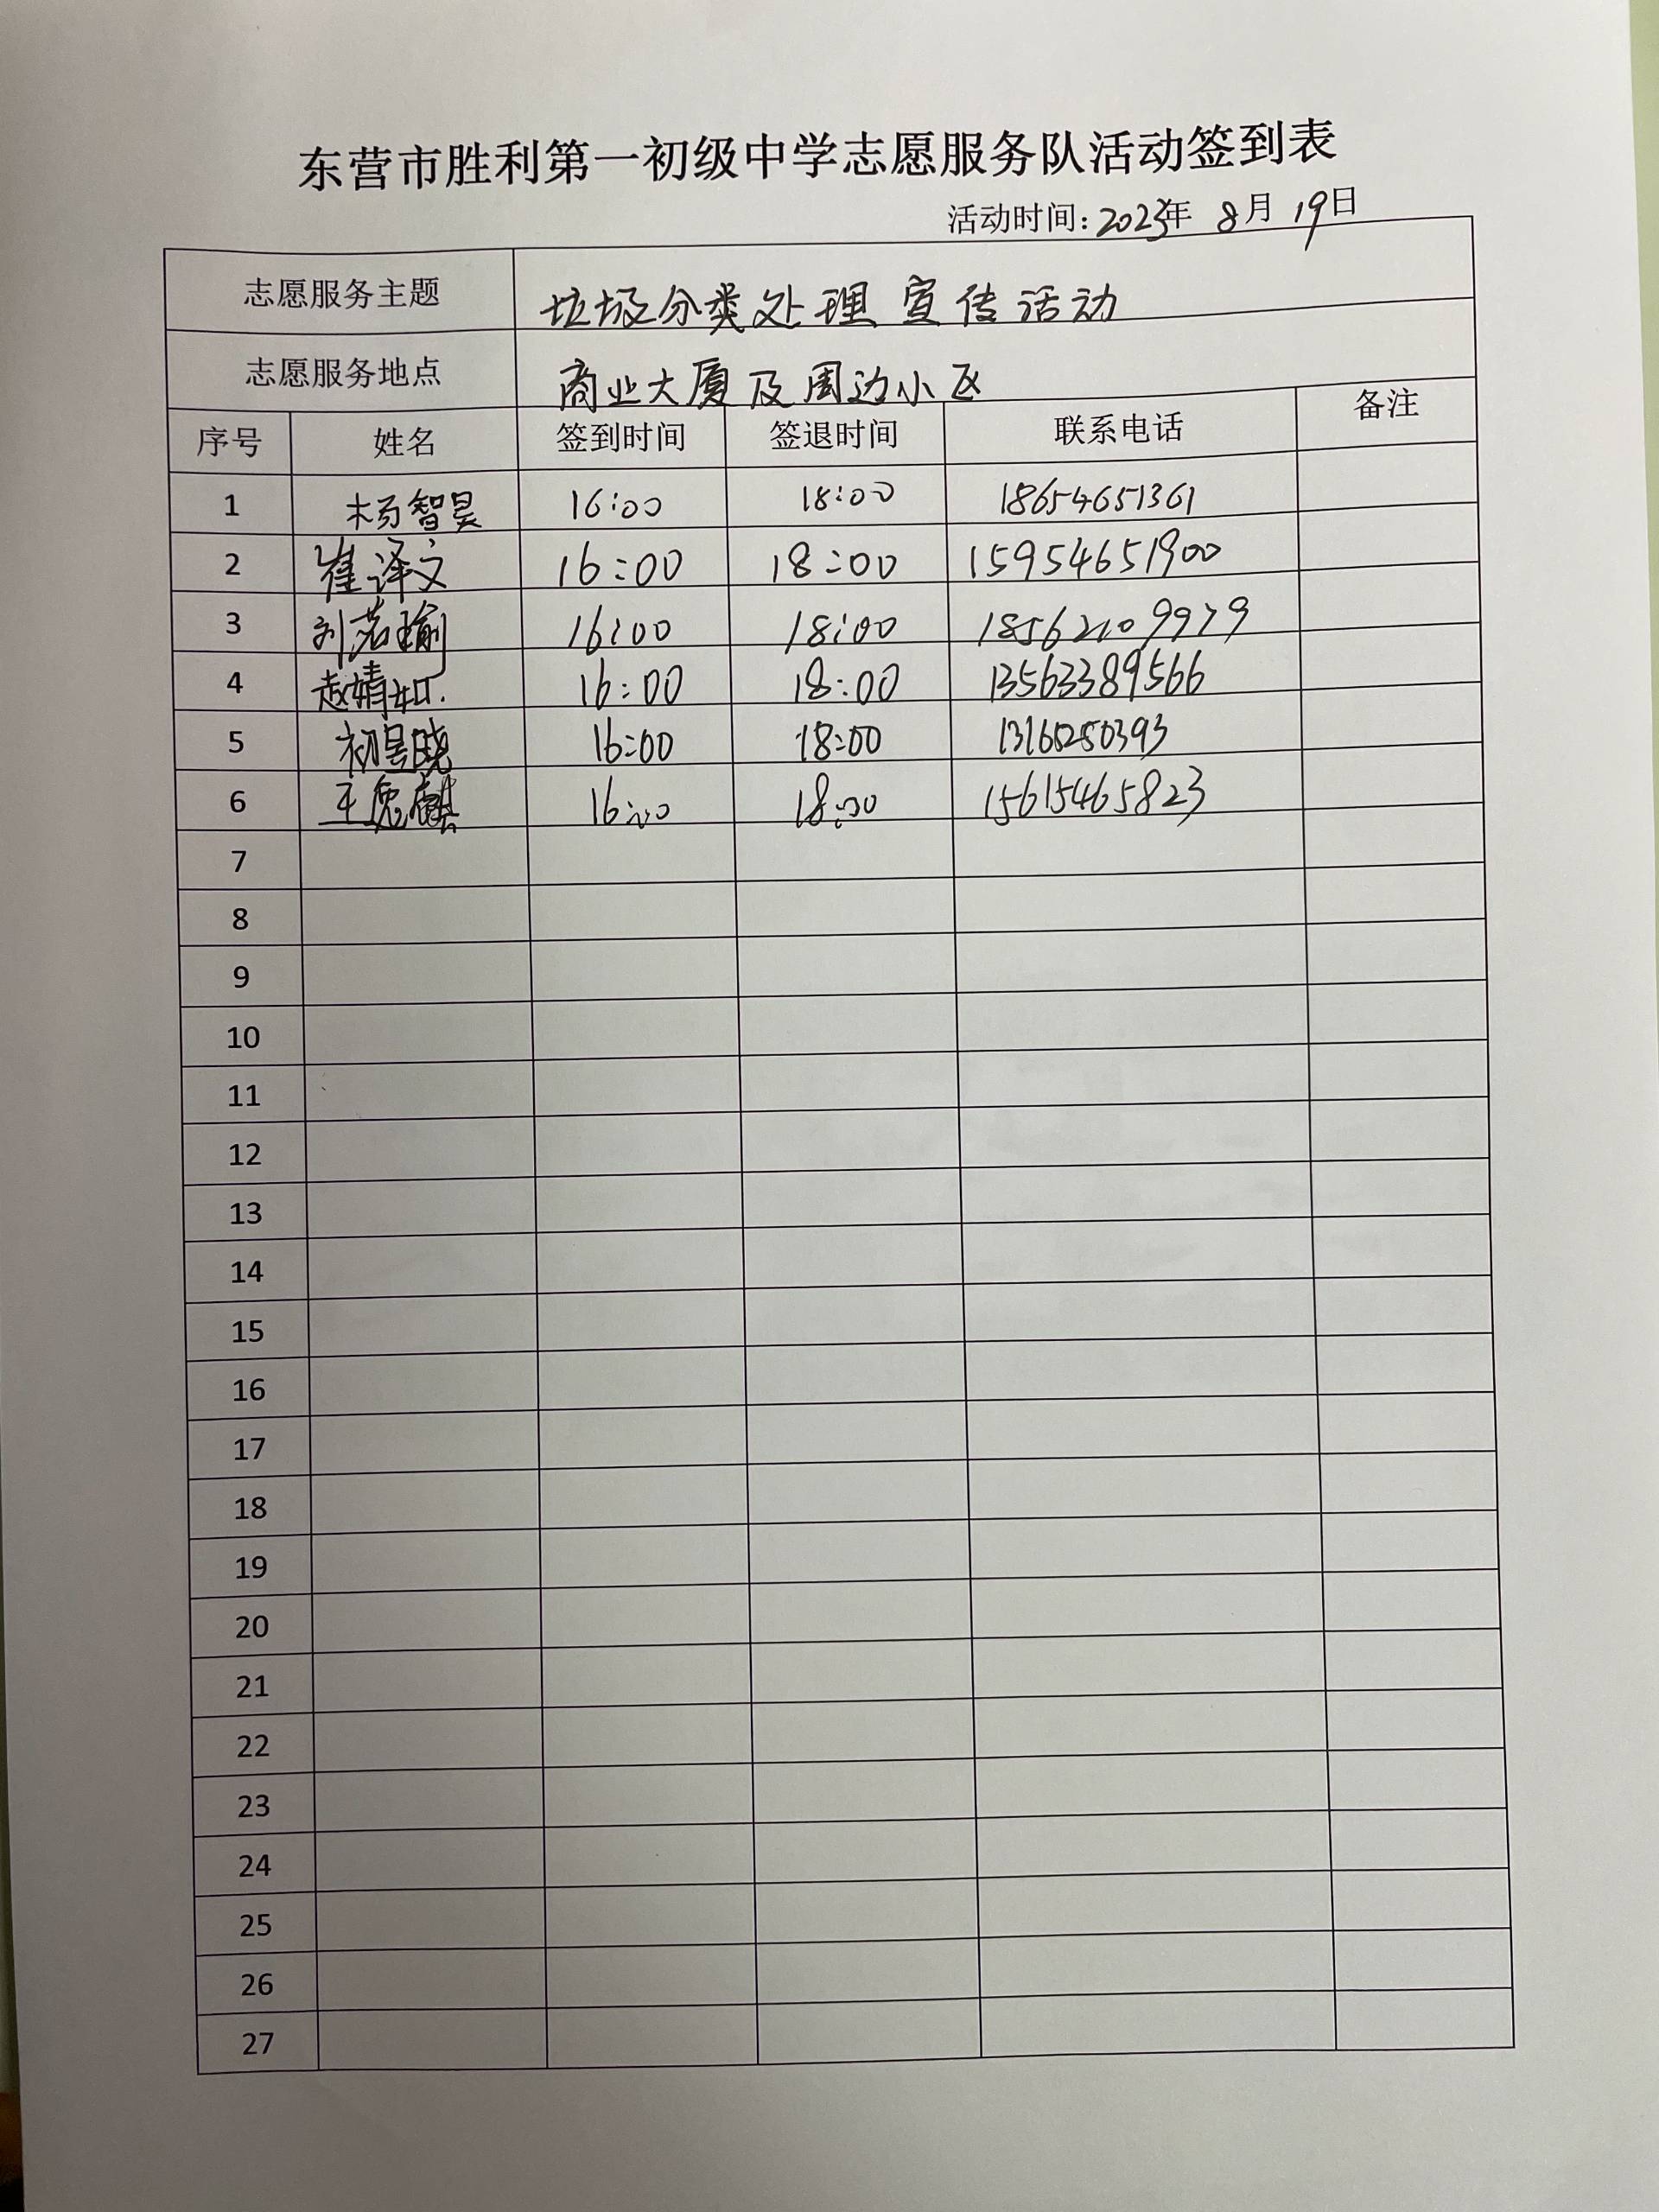 东营市胜利第一初级中学志愿服务队活动签到表
活动时间：2023年 8月 19日
志愿服务主题 垃圾分类处理宣传活动
志愿服务地点 商业大厦及周边小区
序号 姓名 签到时间 签退时间 联系电话 备注
1 杨智昊 16:00 18:00 18654651361
2 崔译文 16:00 18:00 15954651900
3 刘若瑜 16:00 18:00
4 赵婧如 16:00 18:00 13563389566
5 初昱晓 16:00 18:00
6 王 16:00 18:00 15615465823
7
8
9
10
11
12
13
14
15
16
17
18
19
20
21
22
23
24
25
26
27